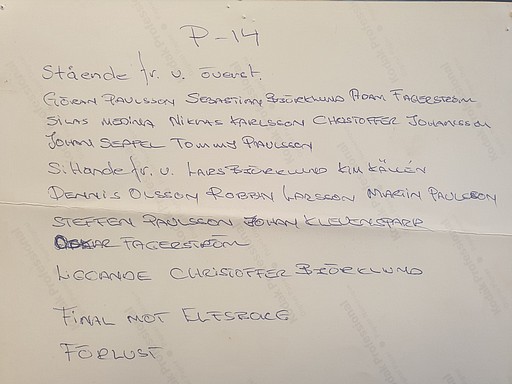 P-14
Stående fr. v. överst.
GÖRAN PAULSSON SEBASTIAN BJÖRKLUND ADAM FAGERSTRÖM
SILAS MEDINA NIKLAS KARLSSON CHRISTOFFER JOHANSSON
JOHAN SEPPEL TOMMY PAULSSON
Sittande fr. v. LARS BJÖRKLUND KIM KÄLLÉN
DENNIS OLSSON ROBBIN LARSSON MARTIN PAULSSON
STEFFEN PAULSSON JOHAN KLEVENSPARR
OSKAR FAGERSTRÖM
LIGGANDE CHRISTOFFER BJÖRKLUND
FINAL MOT
FÖRLUST